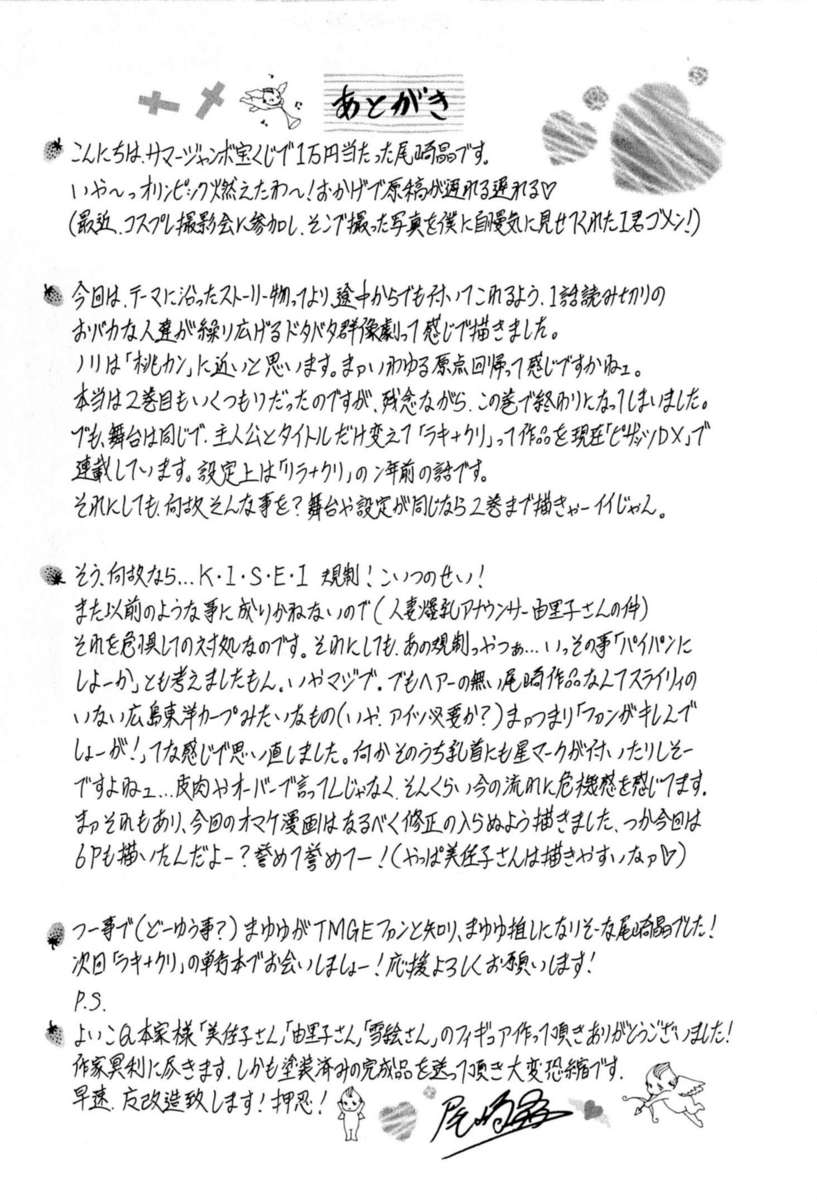 あとがき
こんにちは、サマージャンボ宝くじで1万円当たった尾崎晶です。
いや〜っオリンピック燃えたわ〜!おかげで原稿が遅れる遅れる♡
(最近、コスプレ撮影会に参加し、そこで撮った写真を僕に自慢気に見せてくれたI君ゴメン!)
今回は、テーマに沿ったストーリー物ってより、途中からでも付いてこれるよう、1話読み切りの
おバカな人達が繰り広げるドタバタ群像劇って感じで描きました。
ノリは「桃カン」に近いと思います。まァいわゆる原点回帰って感じですかねェ。
本当は2巻目もいくつもりだったのですが、残念ながら、この巻で終わりになってしまいました。
でも、舞台は同じで、主人公とタイトルだけ変えて「ラキ+クリ」って作品を現在「ピザッツDX」で
連載しています。設定上は「リラ+クリ」の2年前の話です。
それにしても、何故そんな事を?舞台や設定が同じなら2巻まで描きゃーイイじゃん。
そう、何故なら…K・I・S・E・I 規制!こいつのせい!
また以前のような事に成りかねないので(人妻爆乳アナウンサー由里子さんの件)
それを危惧しての対処なのです。それにしても、あの規制っやつぁ…いっその事「パイパンに
しよーか」とも考えましたもん。いやマジで。でもヘアーの無い尾崎作品なんてスライリィの
いない広島東洋カープみたいなもの(いや、アイツ必要か?)まァつまり「ファンがキレんで
しょーが!」てな感じで思い直しました。何かそのうち乳首にも星マークが付いたりしそー
ですよねェ…皮肉やオーバーで言ってんじゃなく、そんくらい今の流れに危機感を感じてます。
まァそれもあり、今回のオマケ漫画はなるべく修正の入らぬよう描きました、つか今回は
6Pも描いたんだよー?誉めて誉めてー!(やっぱ美佐子さんは描きやすいなァ♡)
つー事で(どーゆう事?)まゆゆがTMGEファンと知り、まゆゆ推しになりそーな尾崎晶でした!
次回「ラキ+クリ」の単行本でお会いしましょー!応援よろしくお願いします!
P.S.
よいこ@本家様「美佐子さん」「由里子さん」「雪絵さん」のフィギュア作って頂きありがとうございました!
作家冥利に尽きます、しかも塗装済みの完成品を送って頂き大変恐縮です。
早速、反改造致します!押忍!
尾崎晶